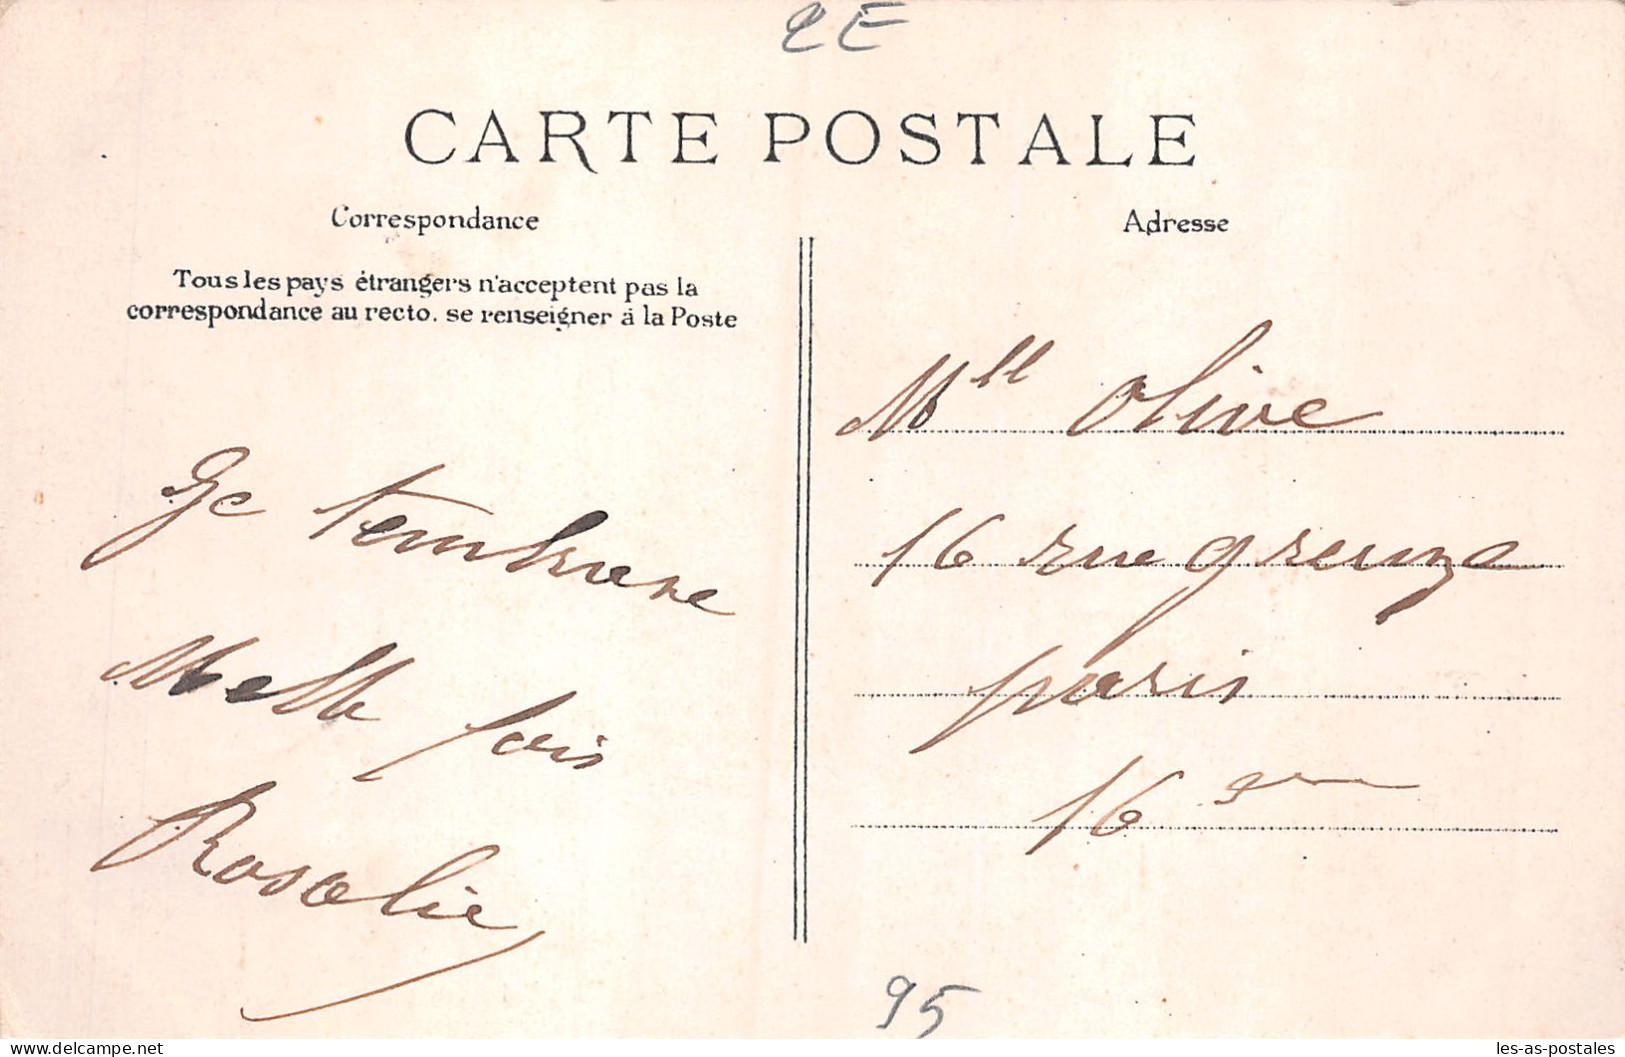 2E
CARTE POSTALE
Correspondance
Tous les pays étrangers n'acceptent pas la
correspondance au recto. se renseigner à la Poste
Ge tembrase
Mell fois
Rosalie
Adresse
Mll Olive
16 rue greuze
paris
16 eme
95
www.delcampe.net
les-as-postales